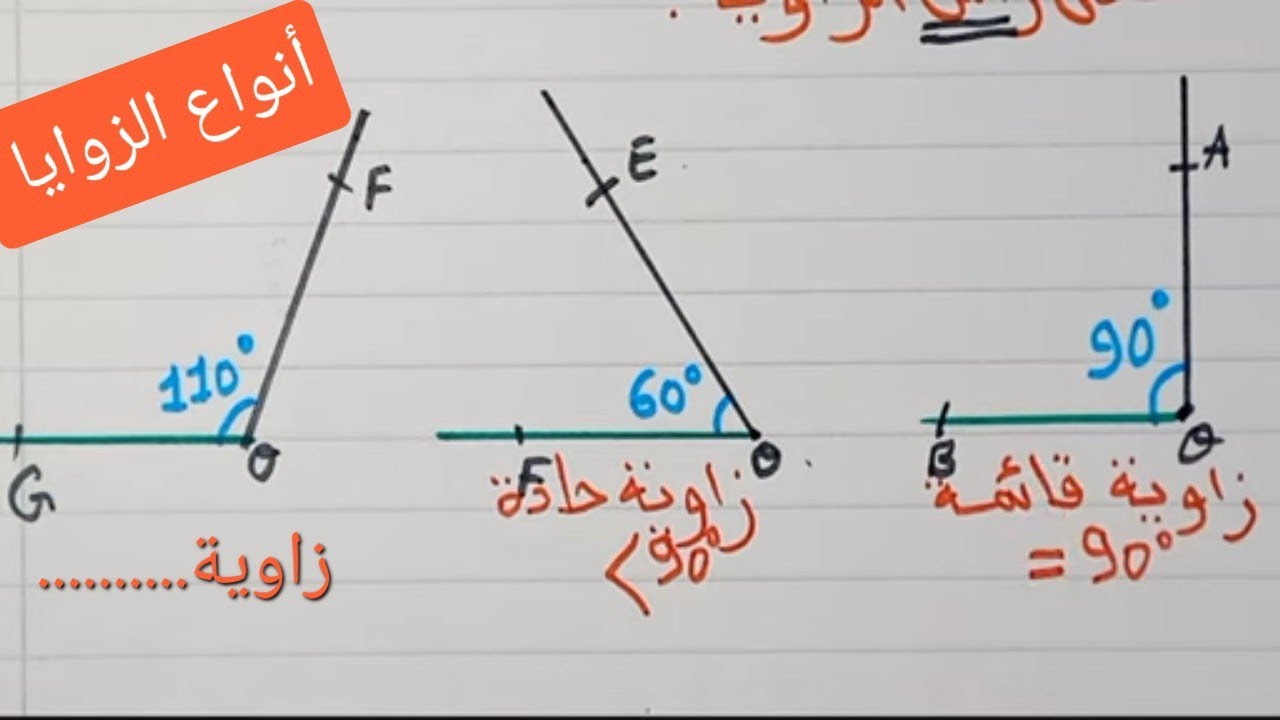 أنواع الزوايا
الزاوية .
A
90°
B
O
زاوية قائمة
= 90°
E
60°
F
O
زاوية حادة
< 90°
F
110°
G
O
زاوية..........